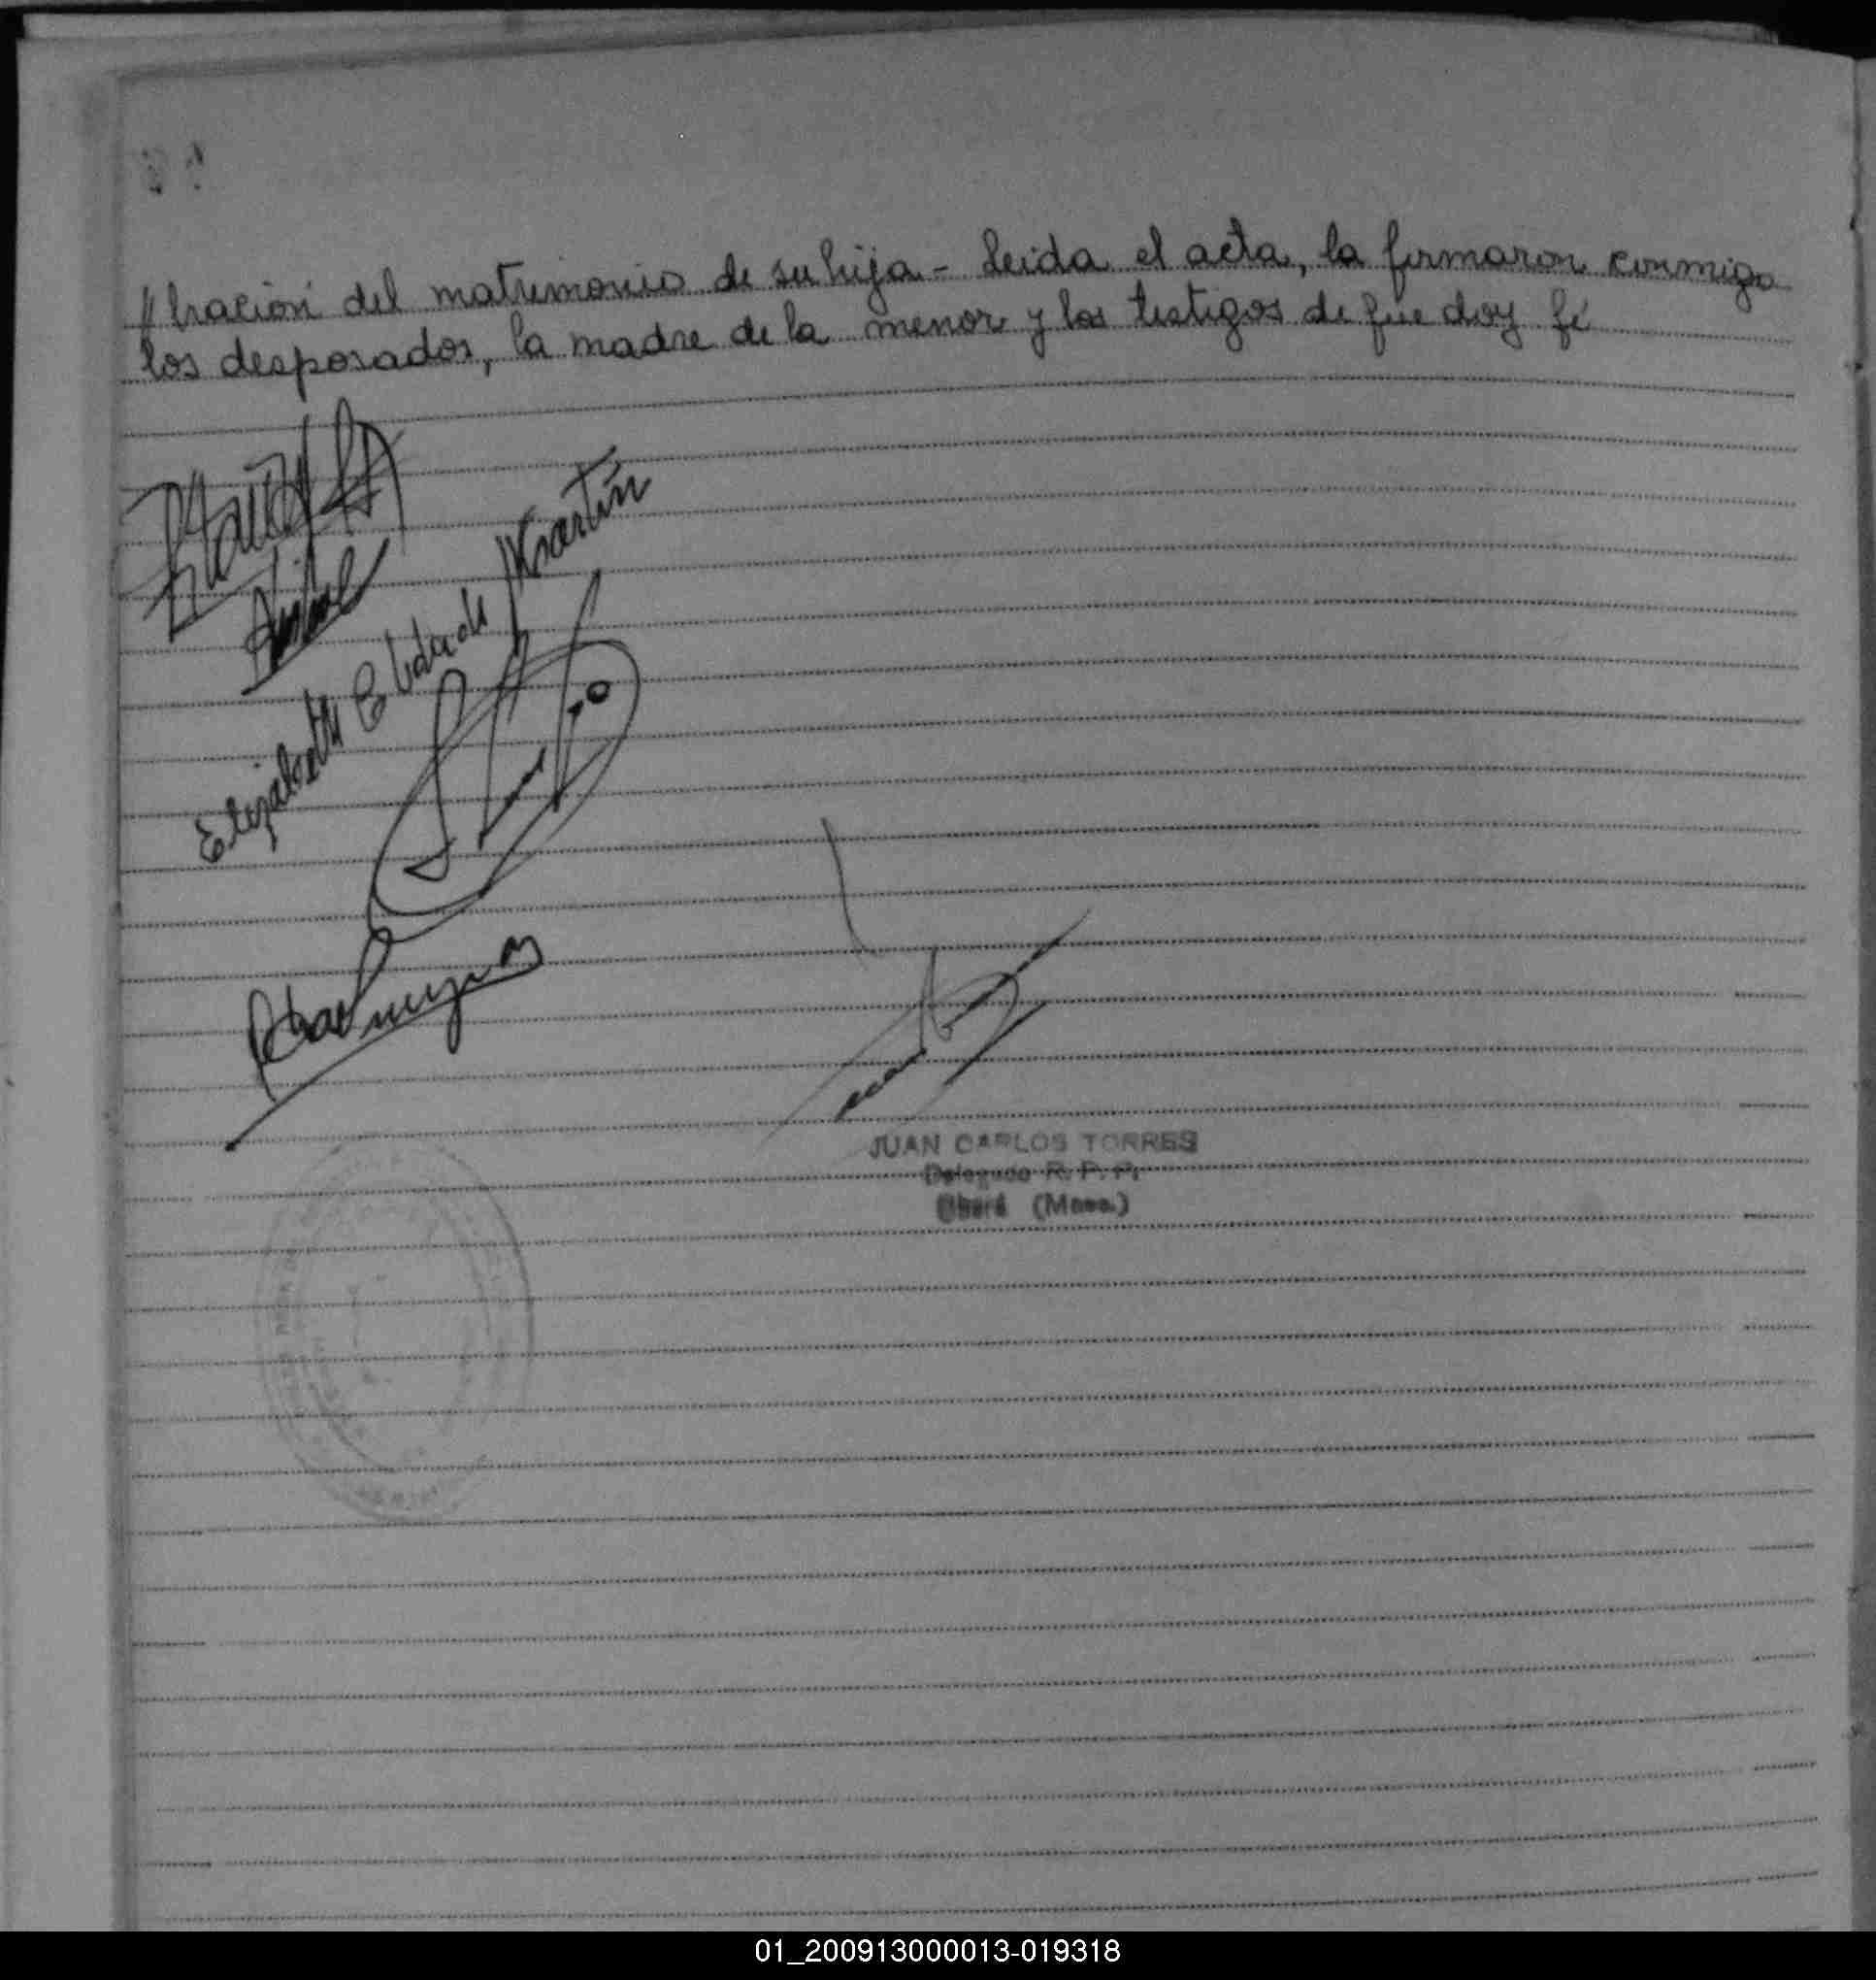 // bración del matrimonio de su hija - Leida el acta, la firmaron conmigo
los desposados, la madre de la menor y los testigos de que doy fé
Elizabeth E de Martín
JUAN CARLOS TORRES
Delegado R. P. P.
Oberá (Mnes.)
01_200913000013-019318